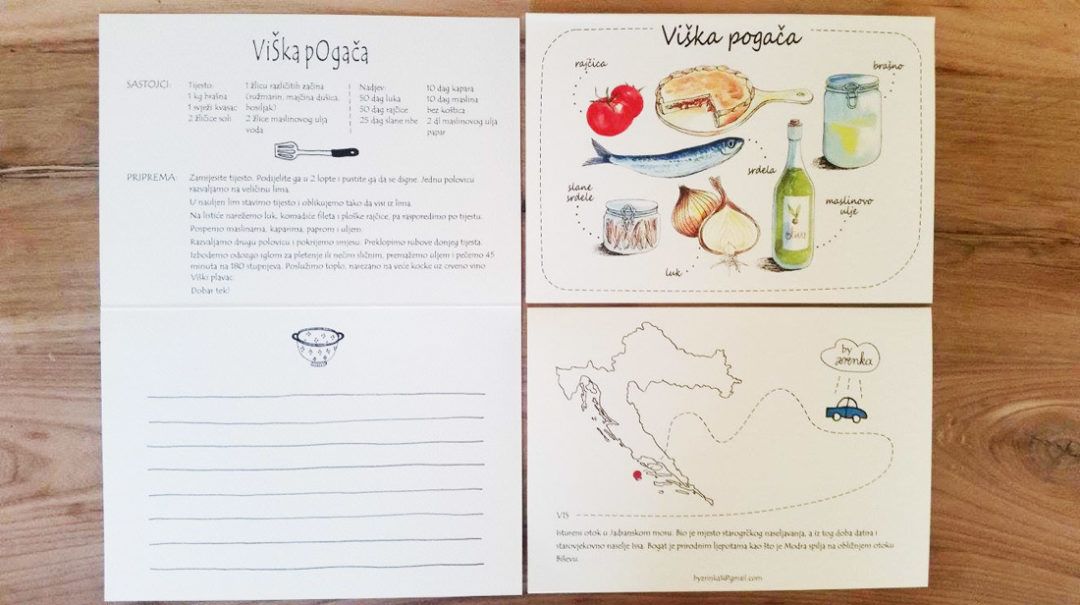 VIŠka pOgača
SASTOJCI:
Tijesto:
1 kg brašna
1 svježi kvasac
2 žličice soli
1 žlicu različitih začina
(ružmarin, majčina dušica,
bosiljak)
2 žlice maslinovog ulja
voda
Nadjev:
50 dag luka
50 dag rajčice
25 dag slane ribe
10 dag kapara
10 dag maslina
bez koštica
2 dl maslinovog ulja
papar
PRIPREMA:
Zamijesite tijesto. Podijelite ga u 2 lopte i pustite ga da se digne. Jednu polovicu
razvaljamo na veličinu lima.
U nauljen lim stavimo tijesto i oblikujemo tako da visi iz lima.
Na listiće narežemo luk, komadiće fileta i ploške rajčice, pa rasporedimo po tijestu.
Pospemo maslinama, kaparima, paprom i uljem.
Razvaljamo drugu polovicu i pokrijemo smjesu. Preklopimo rubove donjeg tijesta.
Izbodemo odozgo iglom za pletenje ili nečim sličnim, premažemo uljem i pečemo 45
minuta na 180 stupnjeva. Poslužimo toplo, narezano na veće kocke uz crveno vino
Viški plavac.
Dobar tek!
Viška pogača
rajčica
brašno
srdela
slane
srdele
maslinovo
ulje
luk
by
zrinka
VIS
Istureni otok u Jadranskom moru. Bio je mjesto starogrčkog naseljavanja, a iz tog doba datira i
starovjekovno naselje Issa. Bogat je prirodnim ljepotama kao što je Modra špilja na obližnjem otoku
Biševu.
byzrinka1@gmail.com